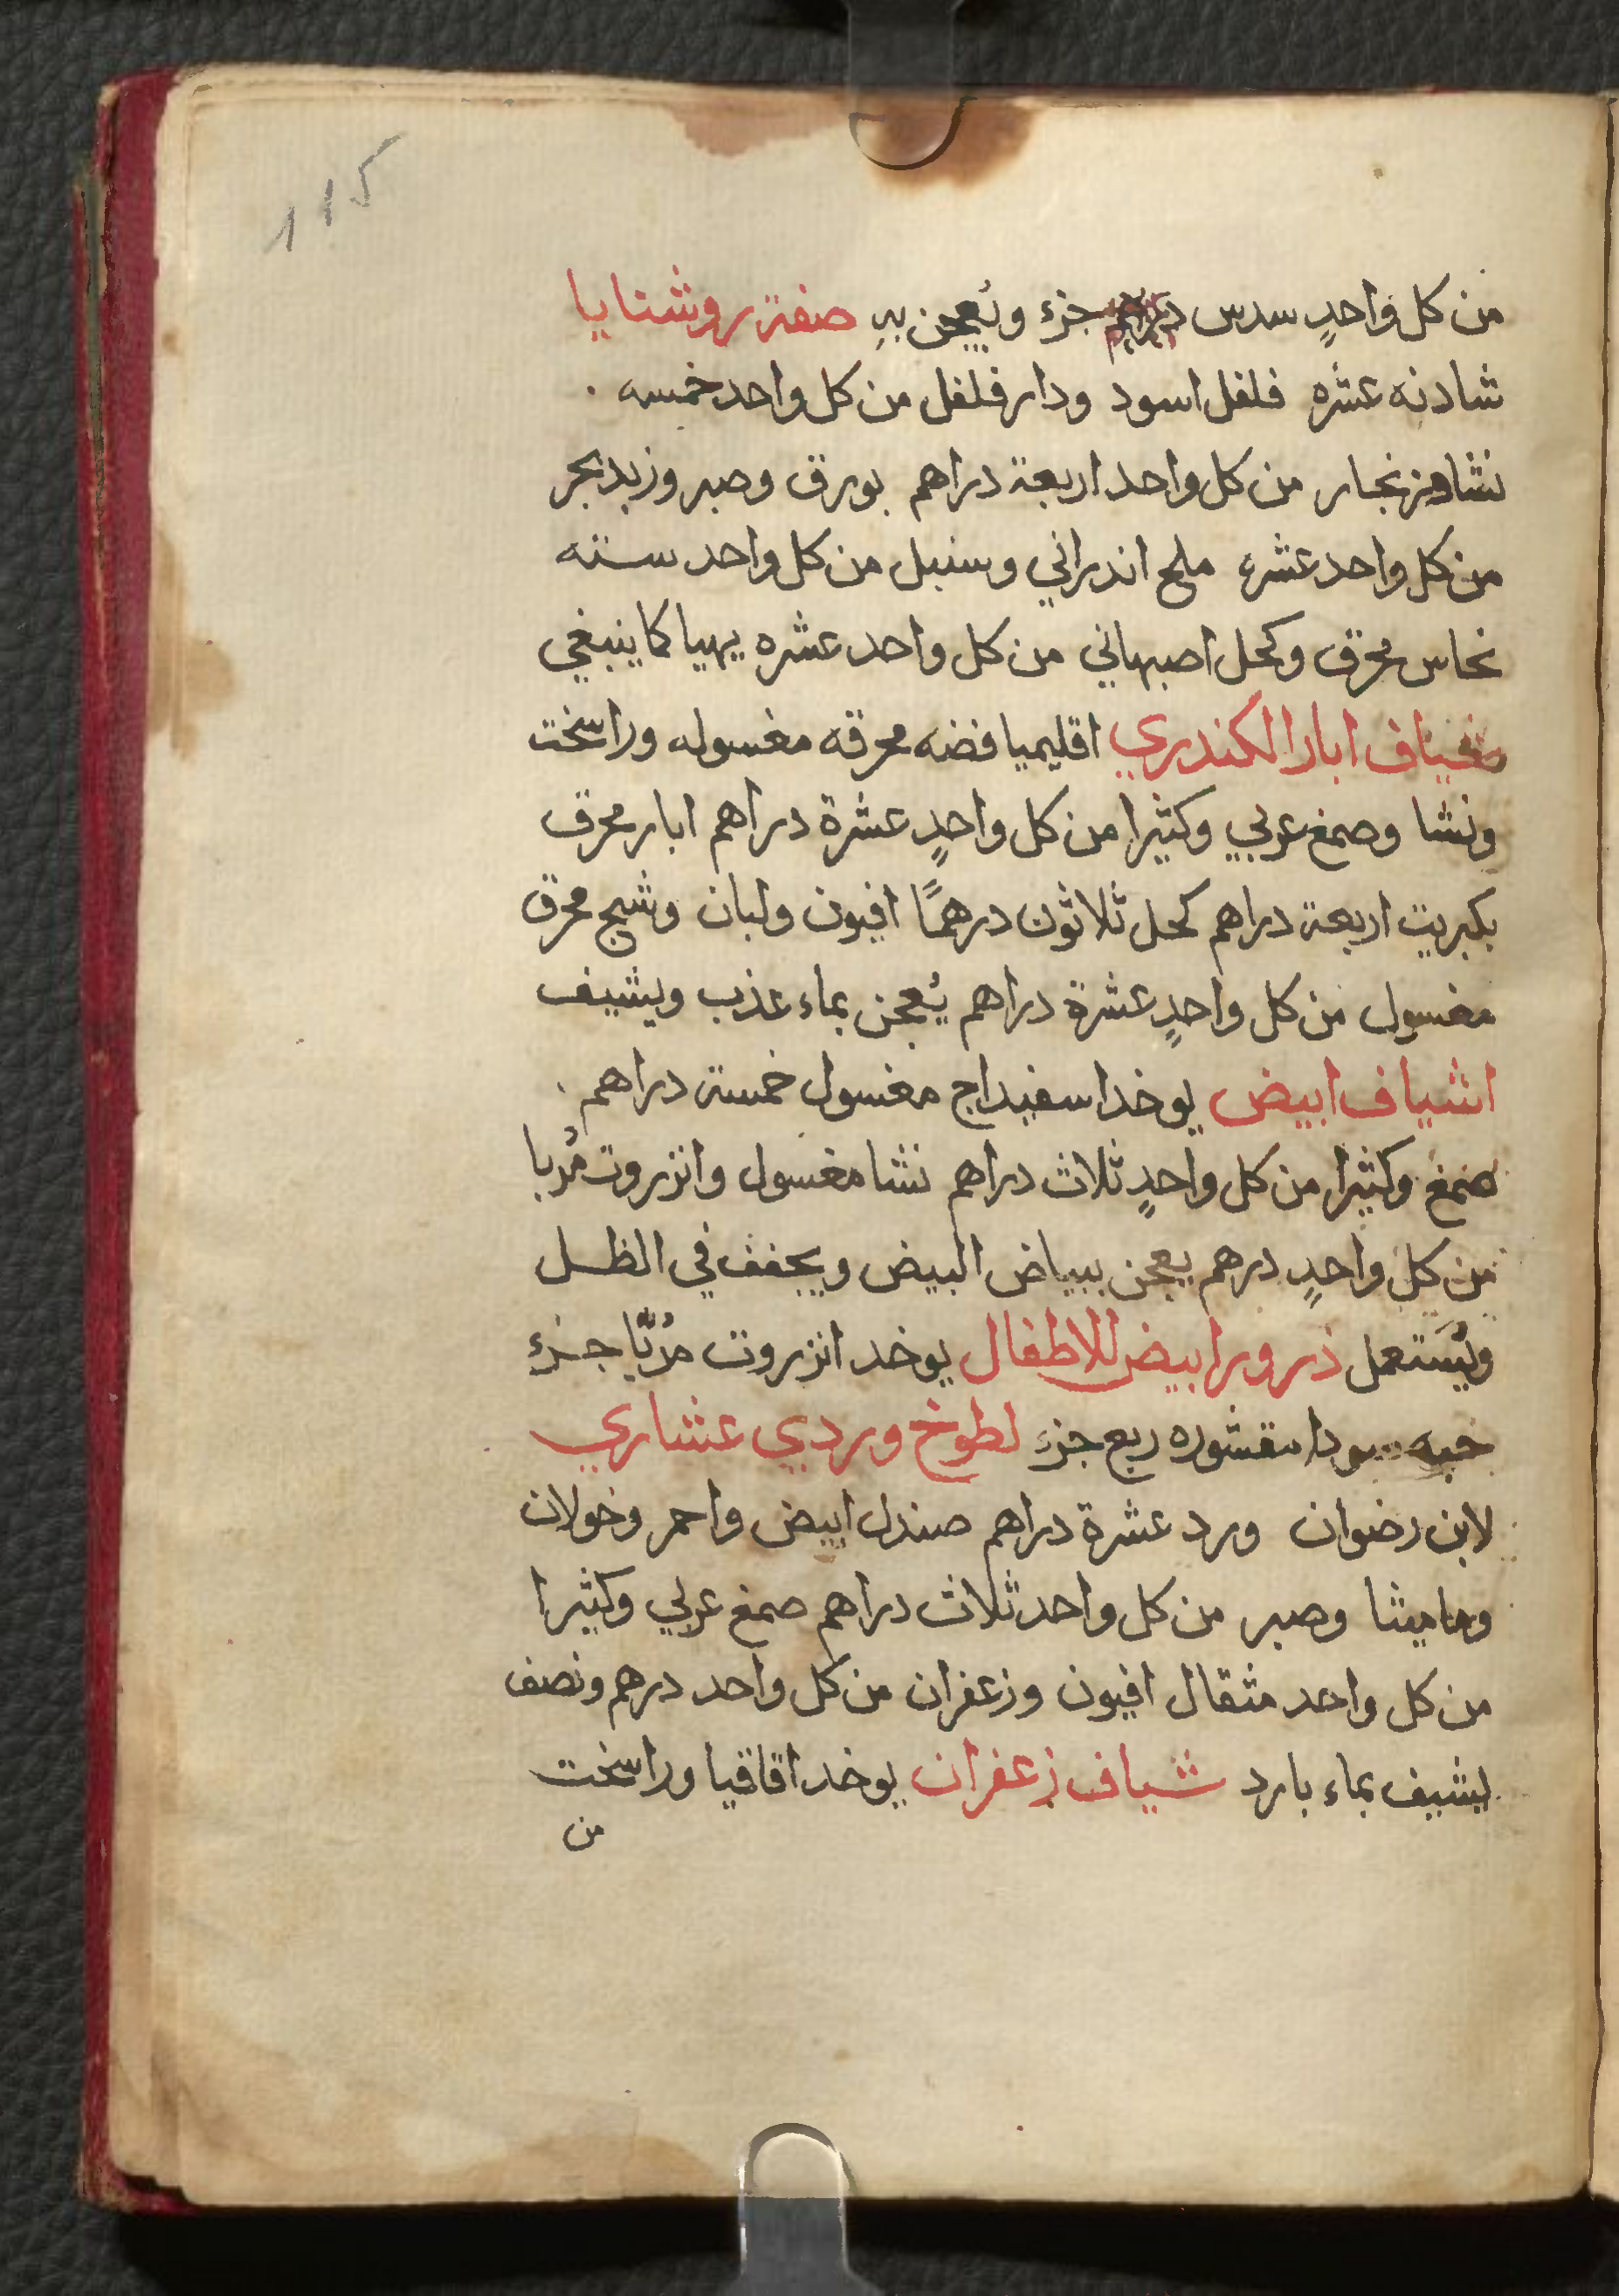 115
من كل واحدٍ سدس جزء ويُعجن بهِ صفة روشنايا
شادنه عشره فلفل اسود ودار فلفل من كل واحد خمسه .
نشا وزنجار من كل واحد اربعة دراهم بورق وصبر وزبد بحر
من كل واحد عشره ملح اندراني وسنبل من كل واحد سته
نحاس محرق وكحل اصبهاني من كل واحد عشره يهيا كما ينبغي
شياف ابار الكندري اقليميا فضه محرقه مغسوله وراسخت
ونشا وصمغ عربي وكثيرا من كل واحدٍ عشرة دراهم ابار محرق
بكبريت اربعة دراهم كحل ثلاثون درهمًا افيون ولبان وشيح محرق
مغسول من كل واحدٍ عشرة دراهم يُعجن بماء عذب ويشيف
اشياف ابيض يوخد اسفيداج مغسول خمسة دراهم .
صمغ وكثيرا من كل واحدٍ ثلاث دراهم نشا مغسول وانزروت مُربا
من كل واحدٍ درهم يعجن ببياض البيض ويجفف في الظل
ويُستعمل ذرور ابيض للاطفال يوخد انزروت مُربّا جزء
حبه سودا مقشوره ربع جزء لطوخ وردي عشاري
لابن رضوان ورد عشرة دراهم صندل ابيض واحمر وخولان
وماميثا وصبر من كل واحد ثلاث دراهم صمغ عربي وكثيرا
من كل واحد مثقال افيون وزعفران من كل واحد درهم ونصف
يشيف بماء بارد شياف زعفران يوخد اقاقيا وراسخت
من